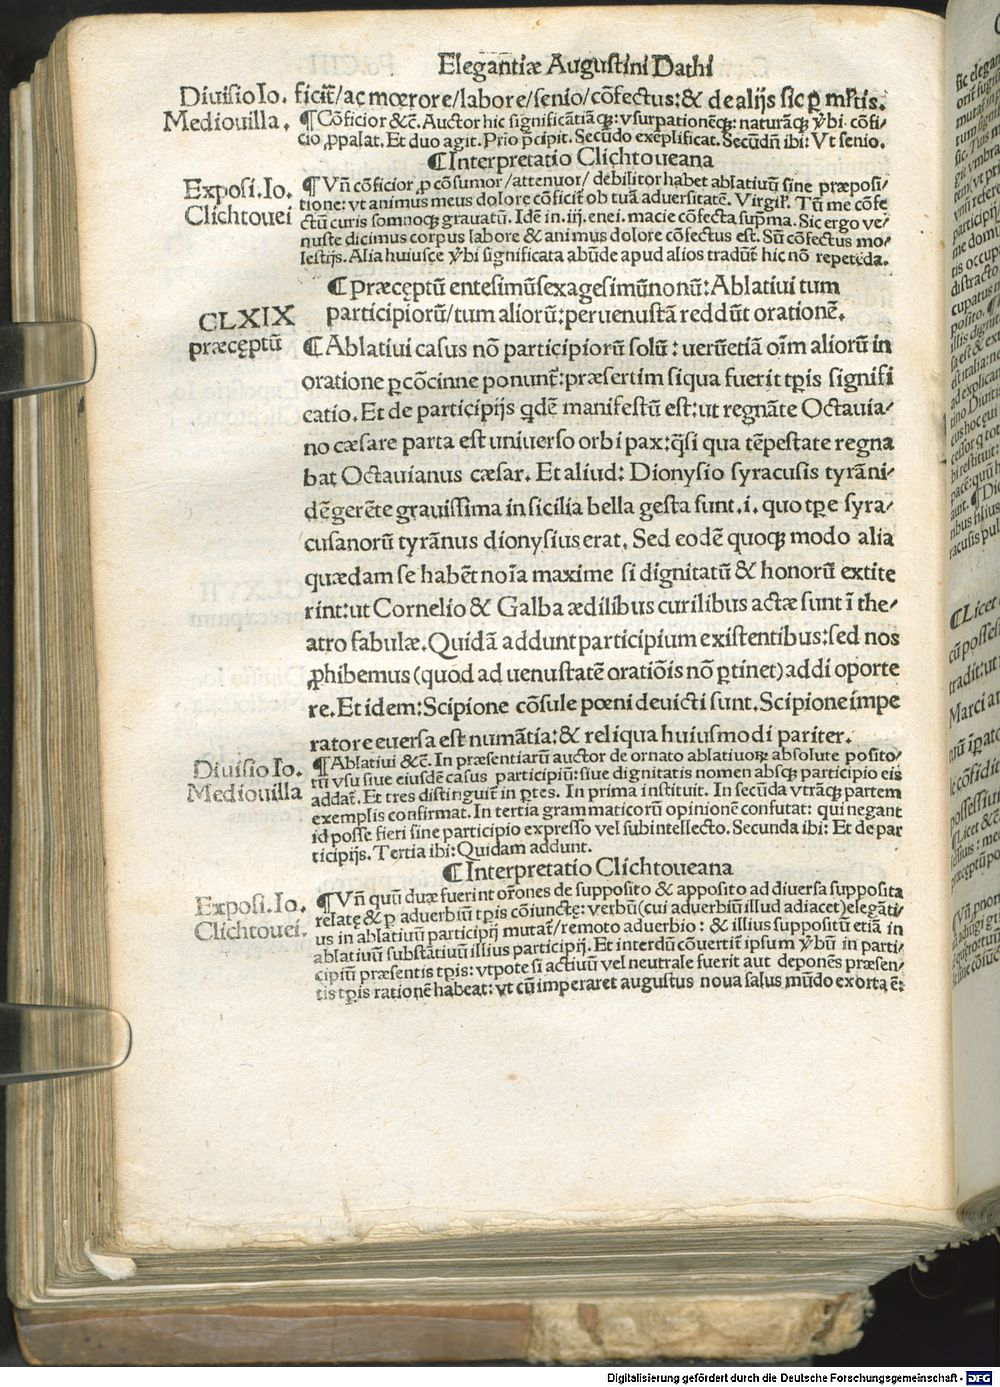 Elegantiæ Augustini Dathi
Diuisio Io.
Mediouilla.
ficit̃/ac mœrore/labore/senio/cõfectus:& de alijs sic ꝑ mr̃tis.
¶Cõficior &c̃. Auctor hic significãtiãqꝫ: vsurpationẽqꝫ: naturãqꝫ v̾bi cõfi⸗
cio ꝓpalat. Et duo agit. Prĩo p̃cipit. Secũdo exẽplificat. Secũdũ ibi: Vt senio.
¶Interpretatio Clichtoueana
Exposi.Io.
Clichtouei
¶Vñ cõficior ꝓ cõsumor/attenuor/debilitor habet ablatiuũ sine præposi⸗
tione: vt animus meus dolore cõficit̃ ob tuã aduersitatẽ. Virgil̃. Tũ me cõfe
ctũ curis somnoqꝫ grauatũ. Idẽ in .iij. enei. macie cõfecta sup̃ma. Sic ergo ve⸗
nuste dicimus corpus labore & animus dolore cõfectus est. Sũ cõfectus mo⸗
lestijs. Alia huiusce v̾bi significata abũde apud alios tradũt̃ hic nõ repetẽda.
¶Præceptũ entesimũsexagesimũnonũ: Ablatiui tum
participiorũ/tum aliorũ: peruenustã reddũt orationẽ.
CLXIX
præceptũ
¶Ablatiui casus nõ participiorũ solũ: uerũetiã oĩm aliorũ in
oratione ꝑcõcinne ponunt̃: præsertim siqua fuerit tp̃is signifi
catio. Et de participijs qdẽ manifestũ est: ut regnãte Octauia⸗
no cæsare parta est uniuerso orbi pax: q̃si qua tẽpestate regna
bat Octauianus cæsar. Et aliud: Dionysio syracusis tyrãni⸗
dẽ gerẽte grauissima in sicilia bella gesta sunt .i. quo tp̃e syra⸗
cusanorũ tyrãnus dionysius erat. Sed eodẽ quoqꝫ modo alia
quædam se habẽt noĩa maxime si dignitatũ & honorũ extite
rint: ut Cornelio & Galba ædilibus curilibus actæ sunt ĩ the⸗
atro fabulæ. Quidã addunt participium existentibus: sed nos
ꝓhibemus (quod ad uenustatẽ oratiõis nõ ꝑtinet) addi oporte
re. Et idem: Scipione cõsule pœni deuicti sunt. Scipione impe
ratore euersa est numãtia: & reliqua huiusmodi pariter.
Diuisio Io.
Mediouilla
¶Ablatiui &c̃. In præsentiarũ auctor de ornato ablatiuoꝝ absolute posito⸗
rũ vsu siue eiusdẽ casus participiũ: siue dignitatis nomen absqꝫ participio eis
addat̃. Et tres distinguit̃ in ꝑtes. In prima instituit. In secũda vtrãqꝫ partem
exemplis confirmat. In tertia grammaticorũ opinionẽ confutat: qui negant
id posse fieri sine participio expresso vel subintellecto. Secunda ibi: Et de par
ticipijs. Tertia ibi: Quidam addunt.
¶Interpretatio Clichtoueana
Exposi.Io.
Clichtouei.
¶Vñ quũ duæ fuerint or̃ones de supposito & apposito ad diuersa supposita
relatę & ꝑ aduerbiũ tp̃is cõiunctę: verbũ (cui aduerbiũ illud adiacet) elegãti⸗
us in ablatiuũ participij mutat̃/remoto aduerbio: & illius suppositũ etiã in
ablatiuũ substãtiuũ illius participij. Et interdũ cõuertit̃ ipsum v̾bũ in parti⸗
cipiũ præsentis tp̃is: vtpote si actiuũ vel neutrale fuerit aut deponẽs præsen⸗
tis tp̃is rationẽ habeat: vt cũ imperaret augustus noua salus mũdo exorta ẽ:
Digitalisierung gefördert durch die Deutsche Forschungsgemeinschaft - DFG